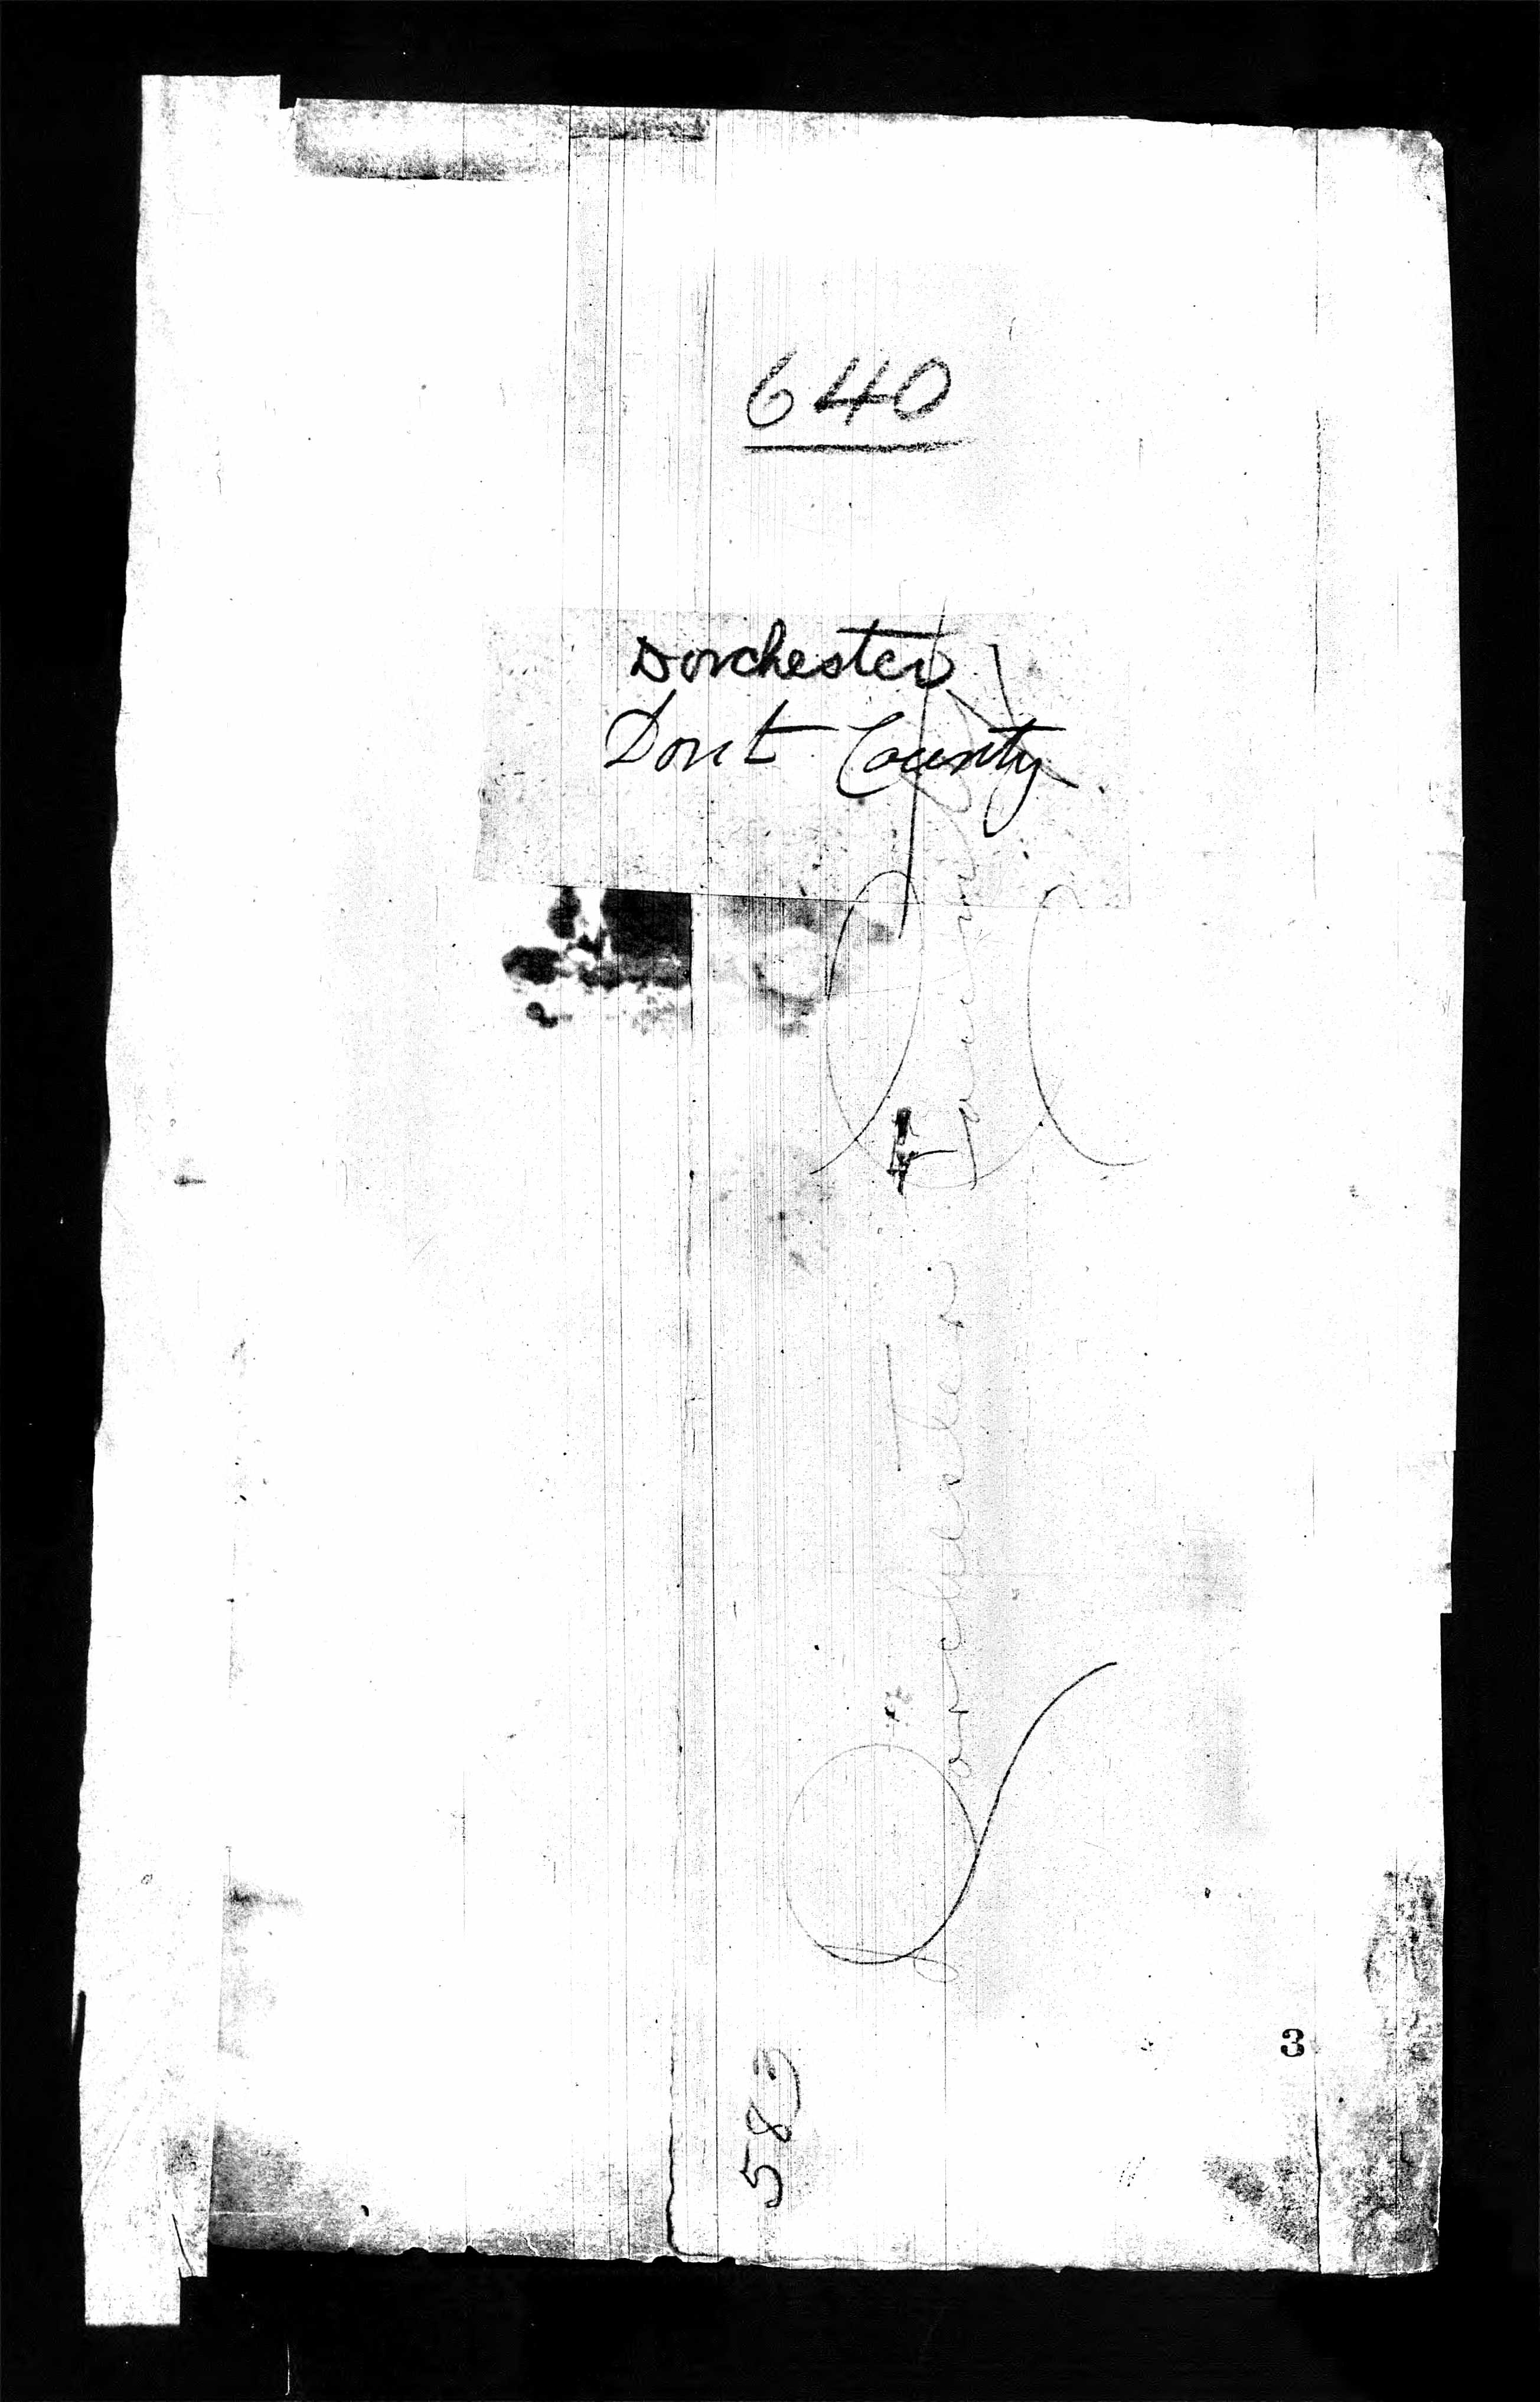 640
Dorchester
Dont County
Dorchester
583
3